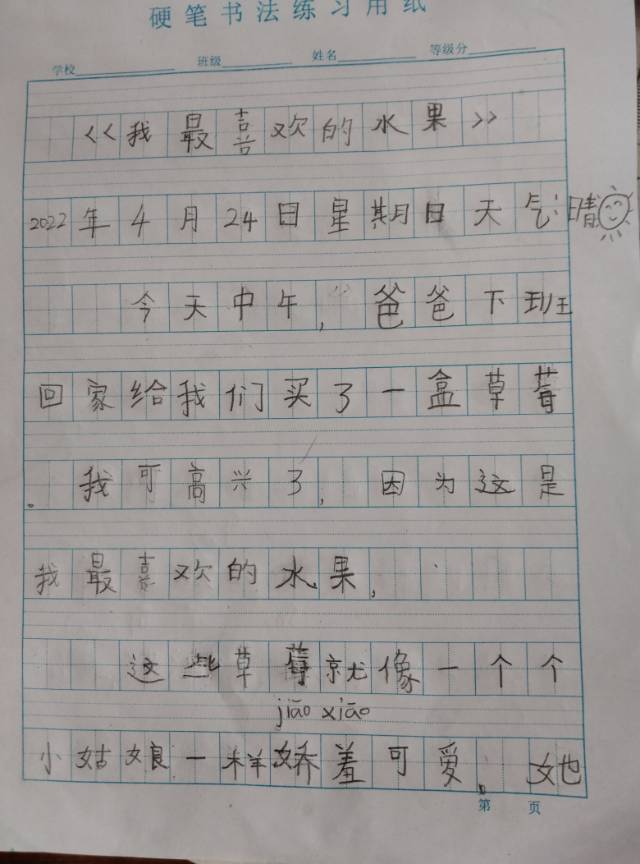 硬笔书法练习用纸
学校 班级 姓名 等级分
<<我最喜欢的水果>>
2022年4月24日星期日天气:晴
今天中午,爸爸下班
回家给我们买了一盒草莓
。我可高兴了,因为这是
我最喜欢的水果,
这些草莓就像一个个
jiāo xiāo
小姑娘一样娇羞可爱。她
第 页